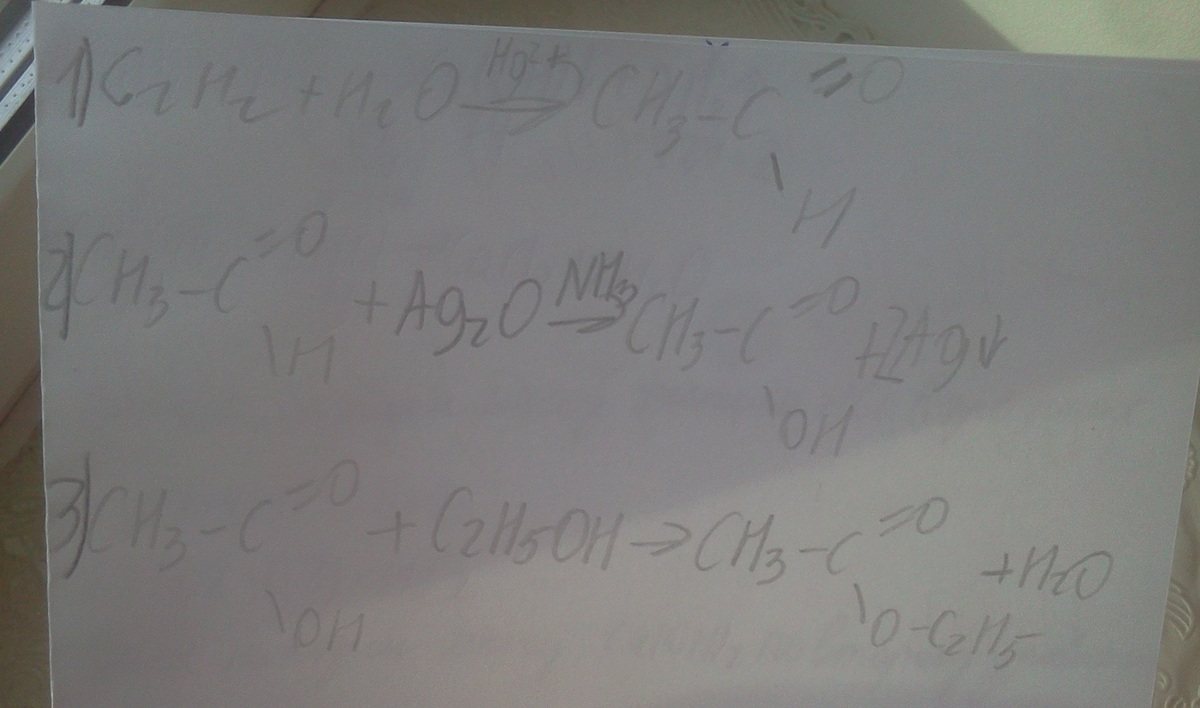 1) C₂H₂ + H₂O →(Hg²⁺) CH₃-C =O
\ H
2) CH₃-C =O \ H + Ag₂O →(NH₃) CH₃-C =O \ OH + 2Ag↓
3) CH₃-C =O \ OH + C₂H₅OH → CH₃-C =O \ O-C₂H₅ + H₂O